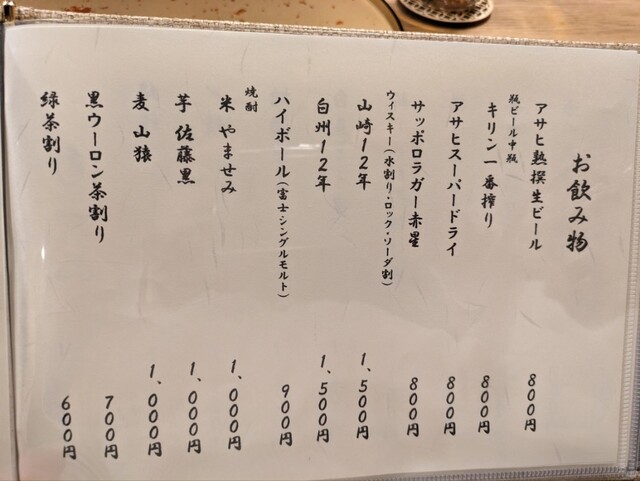 お飲み物
アサヒ熟撰生ビール 800円
瓶ビール中瓶
キリン一番搾り 800円
アサヒスーパードライ 800円
サッポロラガー赤星 800円
ウィスキー(水割り・ロック・ソーダ割)
山崎12年 1,500円
白州12年 1,500円
ハイボール(富士・シングルモルト) 900円
焼酎
米 やませみ 1,000円
芋 佐藤黒 1,000円
麦 山猿 1,000円
黒ウーロン茶割り 700円
緑茶割り 600円